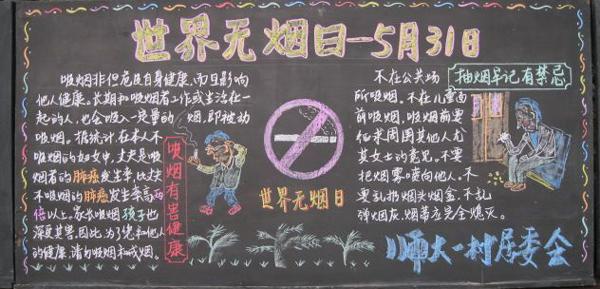 世界无烟日—5月31日
吸烟非但危及自身健康，而且影响
他人健康。长期和吸烟者工作或生活在一
起的人，也会吸入一定量的烟，即被动
吸烟。据统计在本人不
吸烟的妇女中，丈夫是吸
烟者的肺癌发生率，比丈夫
不吸烟的肺癌发生率高两
倍以上。家长吸烟孩子也
深受其害。因此，为了您和他人
的健康，请勿吸烟和戒烟。
吸烟有害健康
世界无烟日
抽烟牢记有禁忌
不在公共场
所吸烟。不在儿童面
前吸烟。吸烟前要
征求周围其他人尤
其女士的意见。不要
把烟雾喷向他人。不
要乱扔烟头烟盒，不乱
弹烟灰，烟蒂应完全熄灭。
师大一村居委会